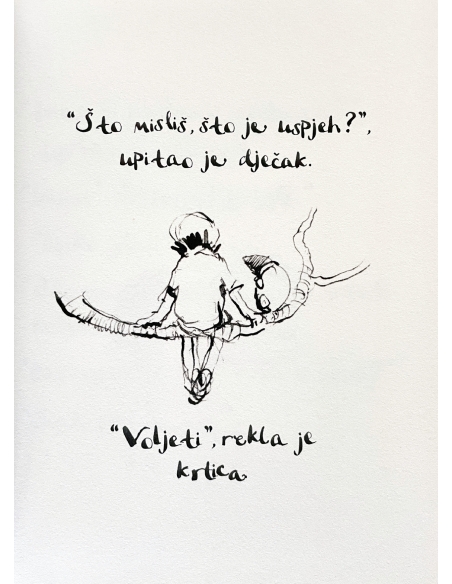 "Što misliš, što je uspjeh?",
upitao je dječak.
"Voljeti", rekla je
krtica